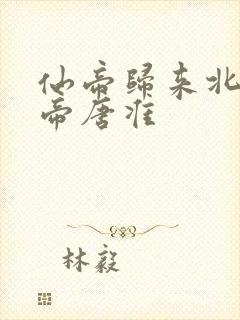 仙帝歸来北
帝唐准
林毅